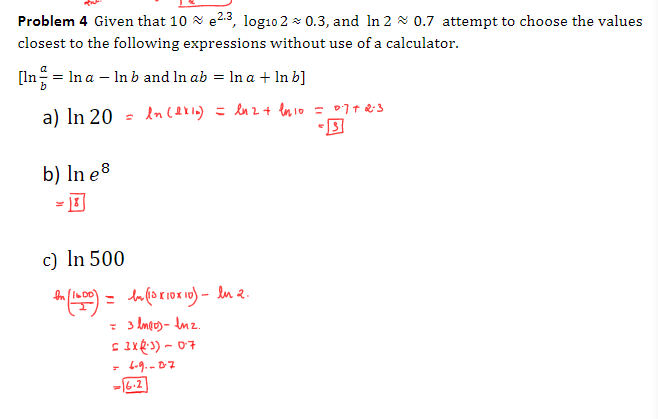 Problem 4 Given that 10 ≈ e^2.3, log10 2 ≈ 0.3, and ln 2 ≈ 0.7 attempt to choose the values
closest to the following expressions without use of a calculator.
[ln a/b = ln a − ln b and ln ab = ln a + ln b]
a) ln 20 = ln(2x10) = ln 2 + ln 10 = 0.7 + 2.3
= 3
b) ln e^8
= 8
c) ln 500
ln(1000/2) = ln(10x10x10) - ln 2.
= 3 ln(10) - ln 2.
= 3x(2.3) - 0.7
= 6.9 - 0.7
= 6.2